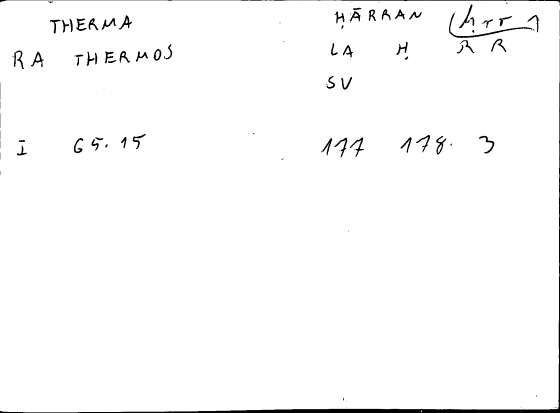 THERMA ḤĀRRAN (ḥrr)
RA THERMOS LA Ḥ R R
SV
I 65.15 177 178. 3